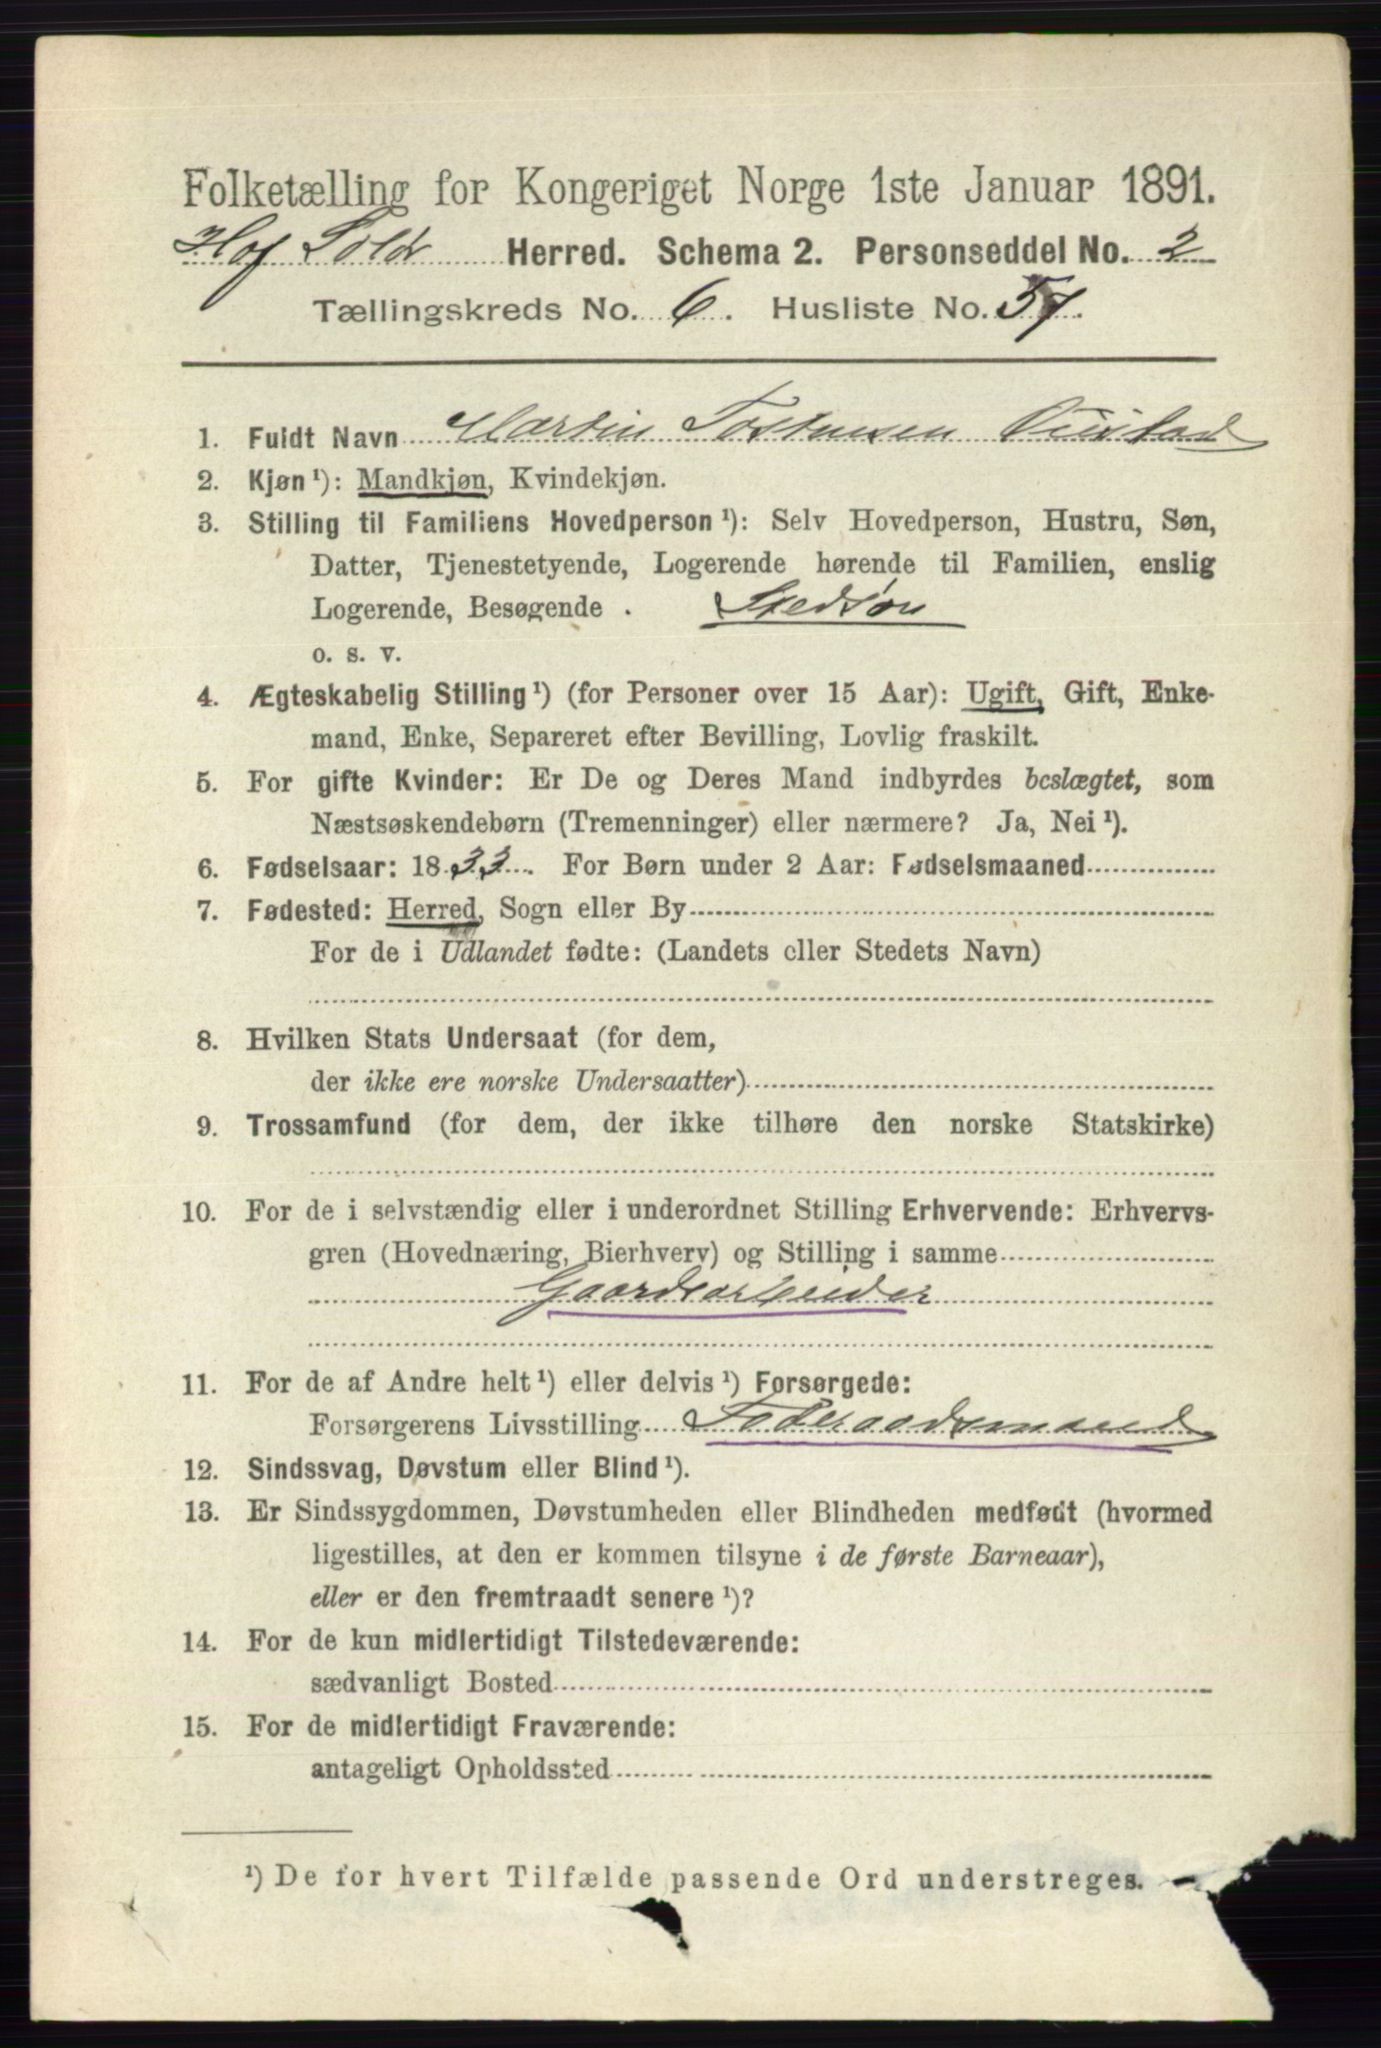 Folketælling for Kongeriget Norge 1ste Januar 1891.
Hof Solør Herred. Schema 2. Personseddel No. 2
Tællingskreds No. 6. Husliste No. 57.
1. Fuldt Navn Martin Tostensen
2. Kjøn¹): Mandkjøn, Kvindekjøn.
3. Stilling til Familiens Hovedperson¹): Selv Hovedperson, Hustru, Søn,
Datter, Tjenestetyende, Logerende hørende til Familien, enslig
Logerende, Besøgende . Stedsøn
o. s. v.
4. Ægteskabelig Stilling¹) (for Personer over 15 Aar): Ugift, Gift, Enke-
mand, Enke, Separeret efter Bevilling, Lovlig fraskilt.
5. For gifte Kvinder: Er De og Deres Mand indbyrdes beslægtet, som
Næstsøskendebørn (Tremenninger) eller nærmere? Ja, Nei¹).
6. Fødselsaar: 1833. For Børn under 2 Aar: Fødselsmaaned
7. Fødested: Herred, Sogn eller By
For de i Udlandet fødte: (Landets eller Stedets Navn)
8. Hvilken Stats Undersaat (for dem,
der ikke ere norske Undersaatter)
9. Trossamfund (for dem, der ikke tilhøre den norske Statskirke)
10. For de i selvstændig eller i underordnet Stilling Erhvervende: Erhvervs-
gren (Hovednæring, Bierhverv) og Stilling i samme
Gaardsarbeider
11. For de af Andre helt¹) eller delvis¹) Forsørgede:
Forsørgerens Livsstilling Føderaadsmand
12. Sindssvag, Døvstum eller Blind¹).
13. Er Sindssygdommen, Døvstumheden eller Blindheden medfødt (hvormed
ligestilles, at den er kommen tilsyne i de første Barneaar),
eller er den fremtraadt senere¹)?
14. For de kun midlertidigt Tilstedeværende:
sædvanligt Bosted
15. For de midlertidigt Fraværende:
antageligt Opholdssted
¹) De for hvert Tilfælde passende Ord understreges.